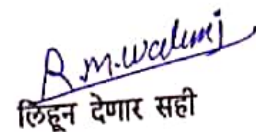 R.m.walunj
लिहून देणार सही